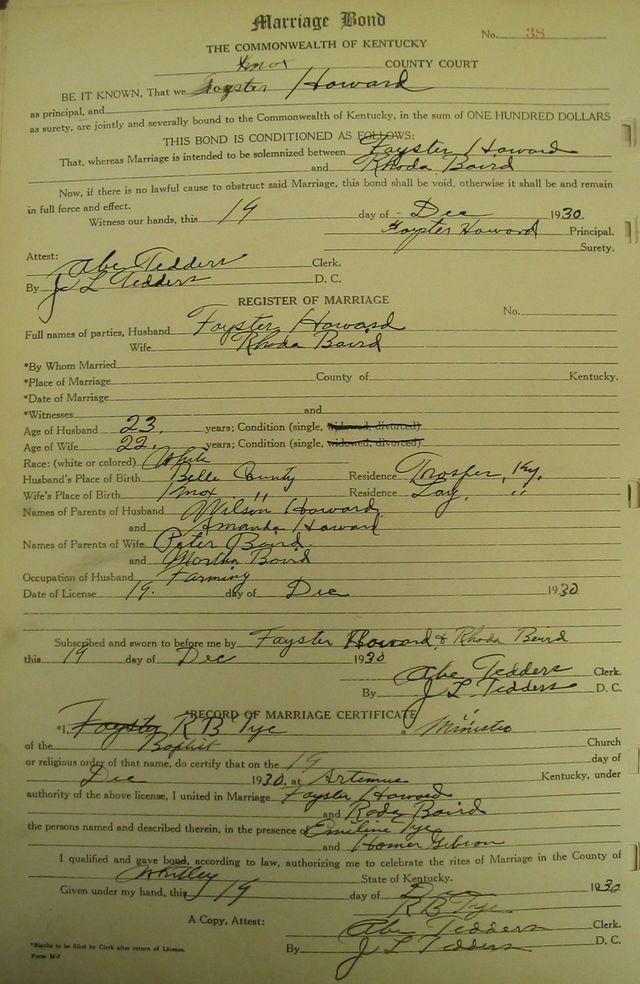 Marriage Bond
No. 38
THE COMMONWEALTH OF KENTUCKY
Knox COUNTY COURT
BE IT KNOWN, That we Foyster Howard
as principal, and
as surety, are jointly and severally bound to the Commonwealth of Kentucky, in the sum of ONE HUNDRED DOLLARS
THIS BOND IS CONDITIONED AS FOLLOWS:
That, whereas Marriage is intended to be solemnized between Foyster Howard
and Rhoda Baird
Now, if there is no lawful cause to obstruct said Marriage, this bond shall be void, otherwise it shall be and remain
in full force and effect.
Witness our hands, this 19 day of Dec 1930.
Foyster Howard Principal.
Surety.
Attest:
Abe Tedders Clerk.
By J L Tedders D. C.
REGISTER OF MARRIAGE
No.
Full names of parties, Husband Foyster Howard
Wife Rhoda Baird
*By Whom Married
*Place of Marriage County of Kentucky.
*Date of Marriage
*Witnesses and
Age of Husband 23, years; Condition (single, widowed, divorced)
Age of Wife 22, years; Condition (single, widowed, divorced)
Race: (white or colored) White
Husband's Place of Birth Belle County Residence Trosper, Ky.
Wife's Place of Birth Knox " Residence Lay, "
Names of Parents of Husband Wilson Howard
and Amanda Howard
Names of Parents of Wife Peter Baird
and Martha Baird
Occupation of Husband Farming
Date of License 19. day of Dec 1930
Subscribed and sworn to before me by Foyster Howard & Rhoda Baird
this 19 day of Dec 1930
Abe Tedders Clerk.
By J L Tedders D. C.
*RECORD OF MARRIAGE CERTIFICATE
*I, Foyster R B Tye a Minister
of the Baptist Church
or religious order of that name, do certify that on the 19 day of
Dec 1930, at Artemus Kentucky, under
authority of the above license, I united in Marriage Foyster Howard
and Roda Baird
the persons named and described therein, in the presence of Emiline Tye
and Homer Gibson
I qualified and gave bond, according to law, authorizing me to celebrate the rites of Marriage in the County of
Whitley State of Kentucky.
Given under my hand, this 19 day of Dec 1930
R B Tye
A Copy, Attest: Abe Tedders Clerk.
By J L Tedders D. C.
*Blanks to be filled by Clerk after return of License.
Form M-7